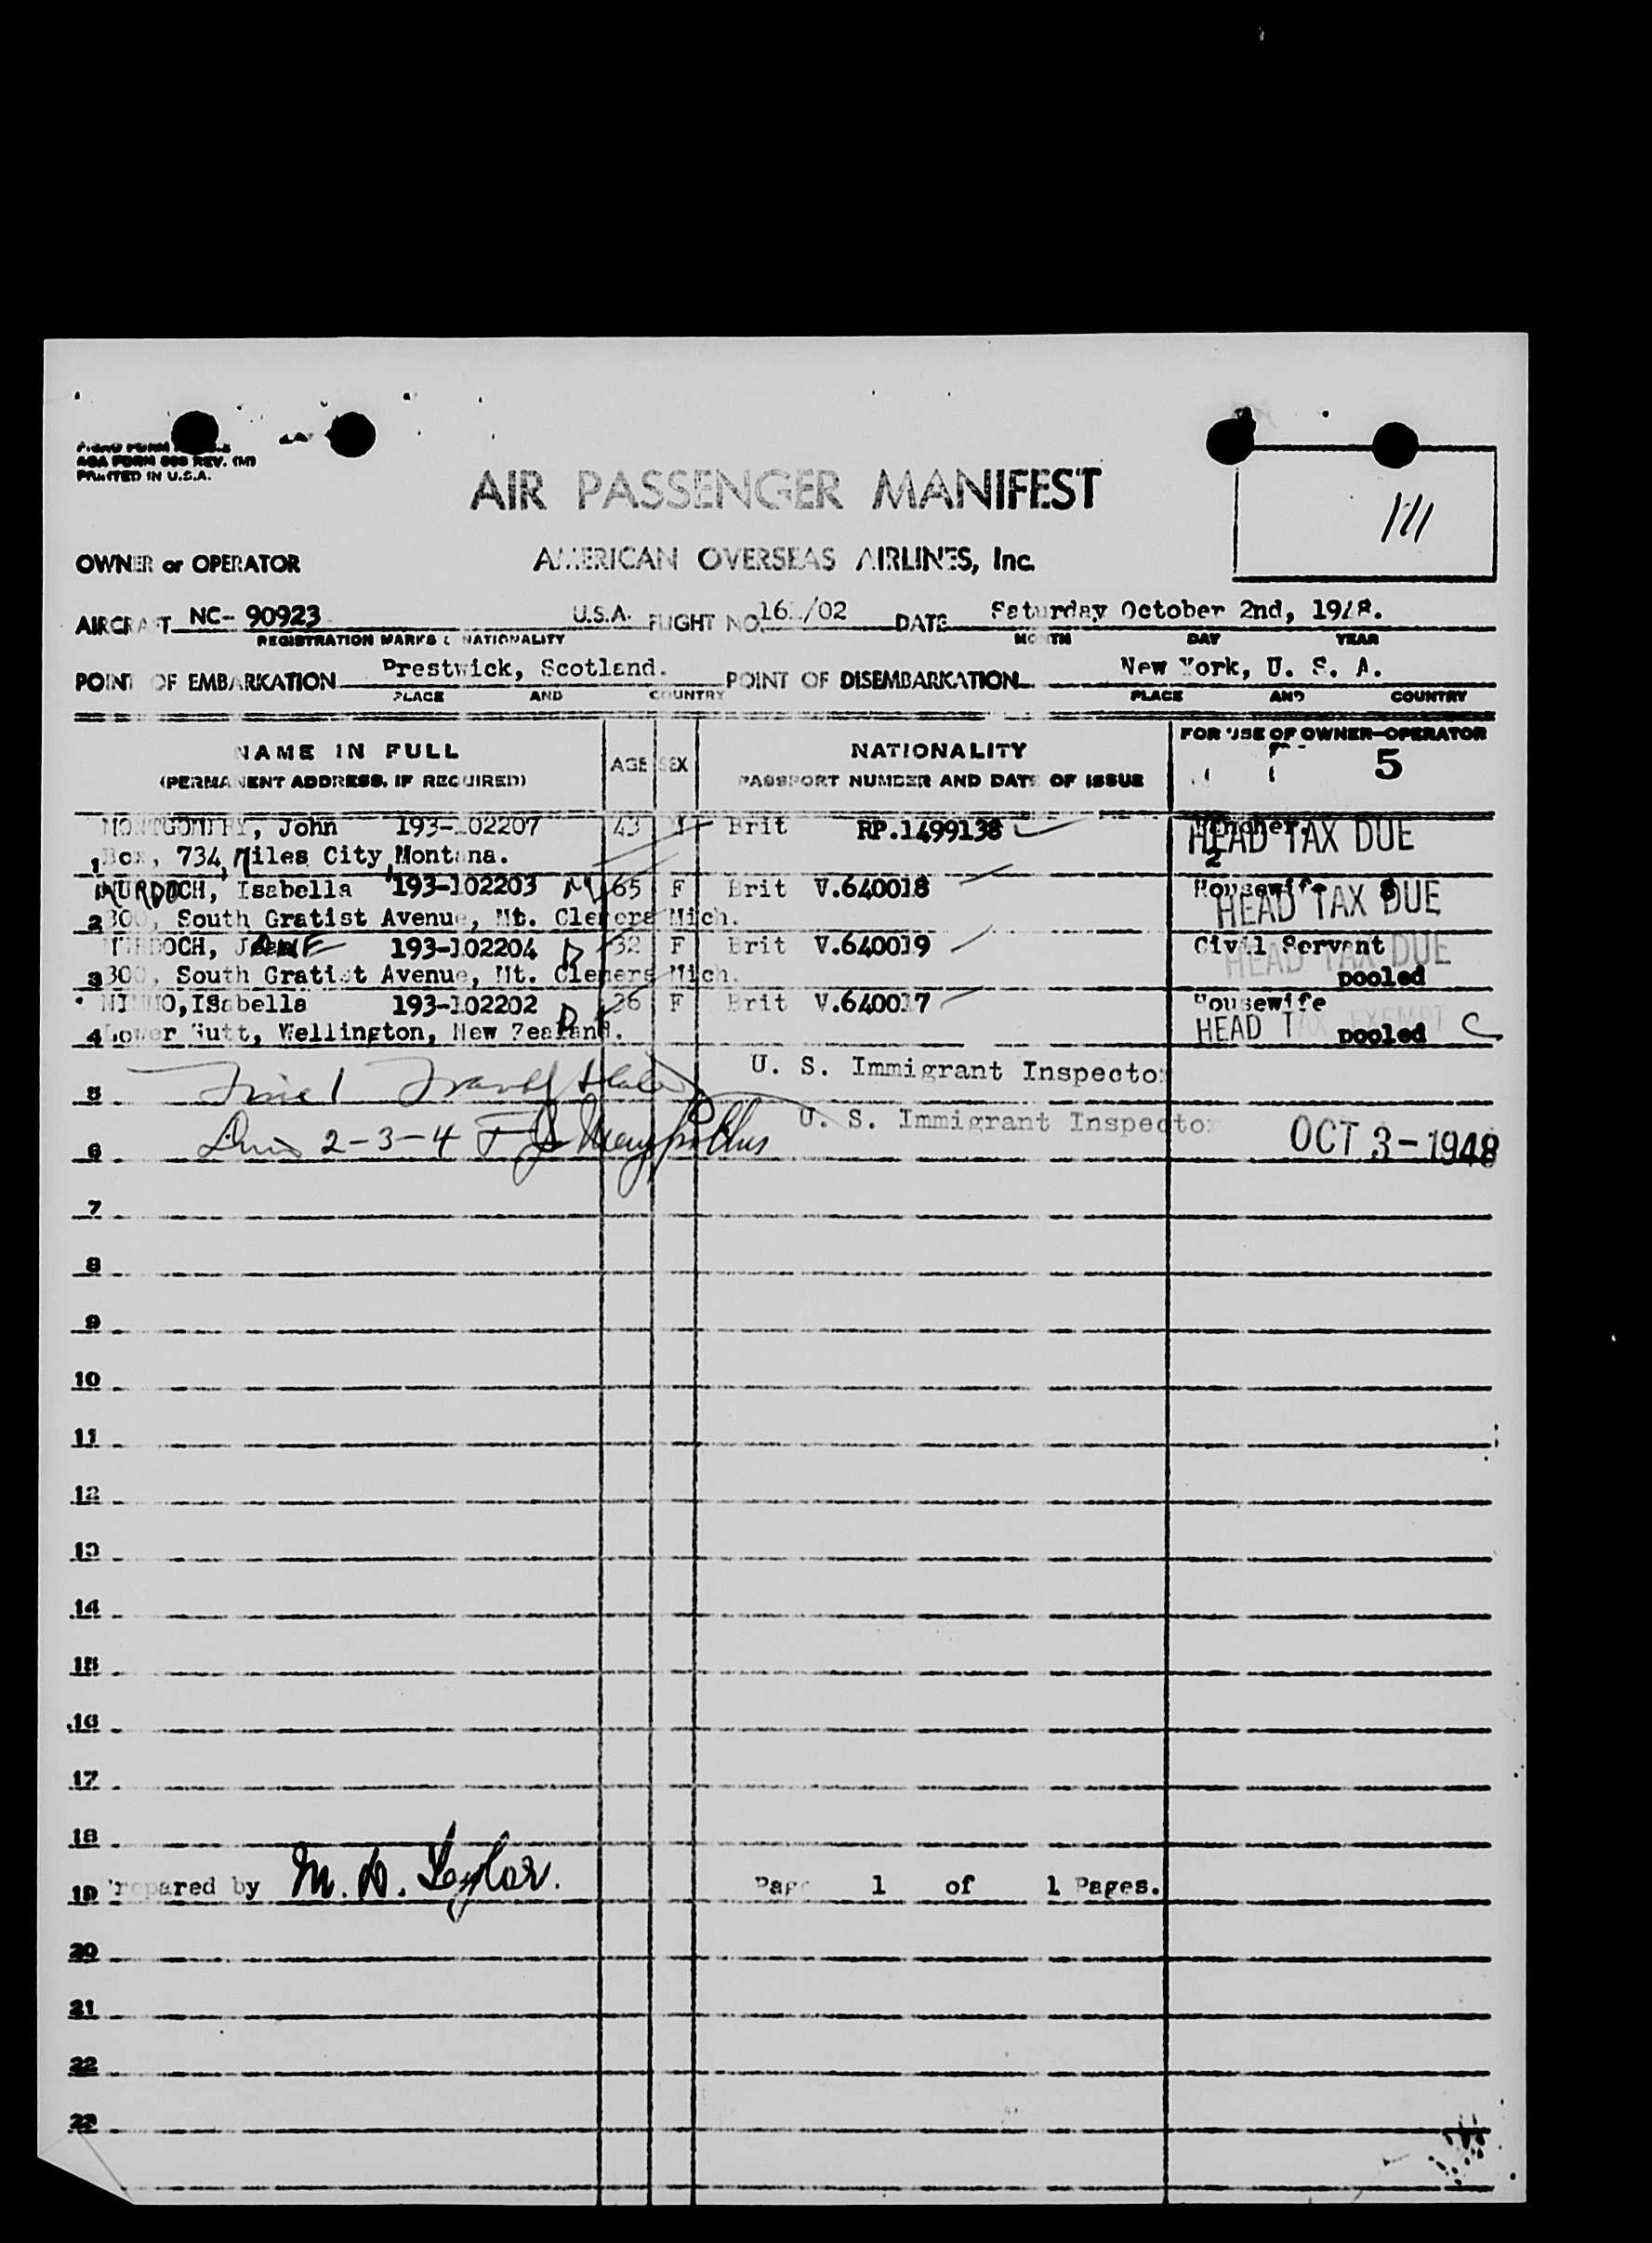 AOA FORM REV. (M)
PRINTED IN U.S.A.
111
AIR PASSENGER MANIFEST
OWNER or OPERATOR AMERICAN OVERSEAS AIRLINES, Inc.
AIRCRAFT NC- 90923 U.S.A. FLIGHT NO. DATE Saturday October 2nd, 1948.
REGISTRATION MARKS & NATIONALITY MONTH DAY YEAR
POINT OF EMBARKATION Prestwick, Scotland. POINT OF DISEMBARKATION New York, U. S. A.
PLACE AND COUNTRY PLACE AND COUNTRY
NAME IN FULL AGE SEX NATIONALITY FOR USE OF OWNER-OPERATOR
(PERMANENT ADDRESS, IF REQUIRED) PASSPORT NUMBER AND DATE OF ISSUE 5
MONTGOMERY, John 193-102207 43 M Brit RP.1499138 HEAD TAX DUE
1 Box, 734, Miles City, Montana. 2
MURDOCH, Isabella 193-102203 M 65 F Brit V.640018 Housewife 8 HEAD TAX DUE
2 300, South Gratist Avenue, Mt. Clemens Mich.
MURDOCH, JANE 193-102204 32 F Brit V.640019 Civil Servant HEAD TAX DUE
3 300, South Gratist Avenue, Mt. Clemens Mich. pooled
NIMMO, ISabella 193-102202 26 F Brit V.640017 Housewife
4 Lower Hutt, Wellington, New Zealand. HEAD TAX EXEMPT pooled C
5 Line 1 U. S. Immigrant Inspector
6 Lines 2-3-4 U. S. Immigrant Inspector OCT 3-1948
7
8
9
10
11
12
13
14
15
16
17
18
19 Prepared by M. D. Taylor. Page 1 of 1 Pages.
20
21
22
23